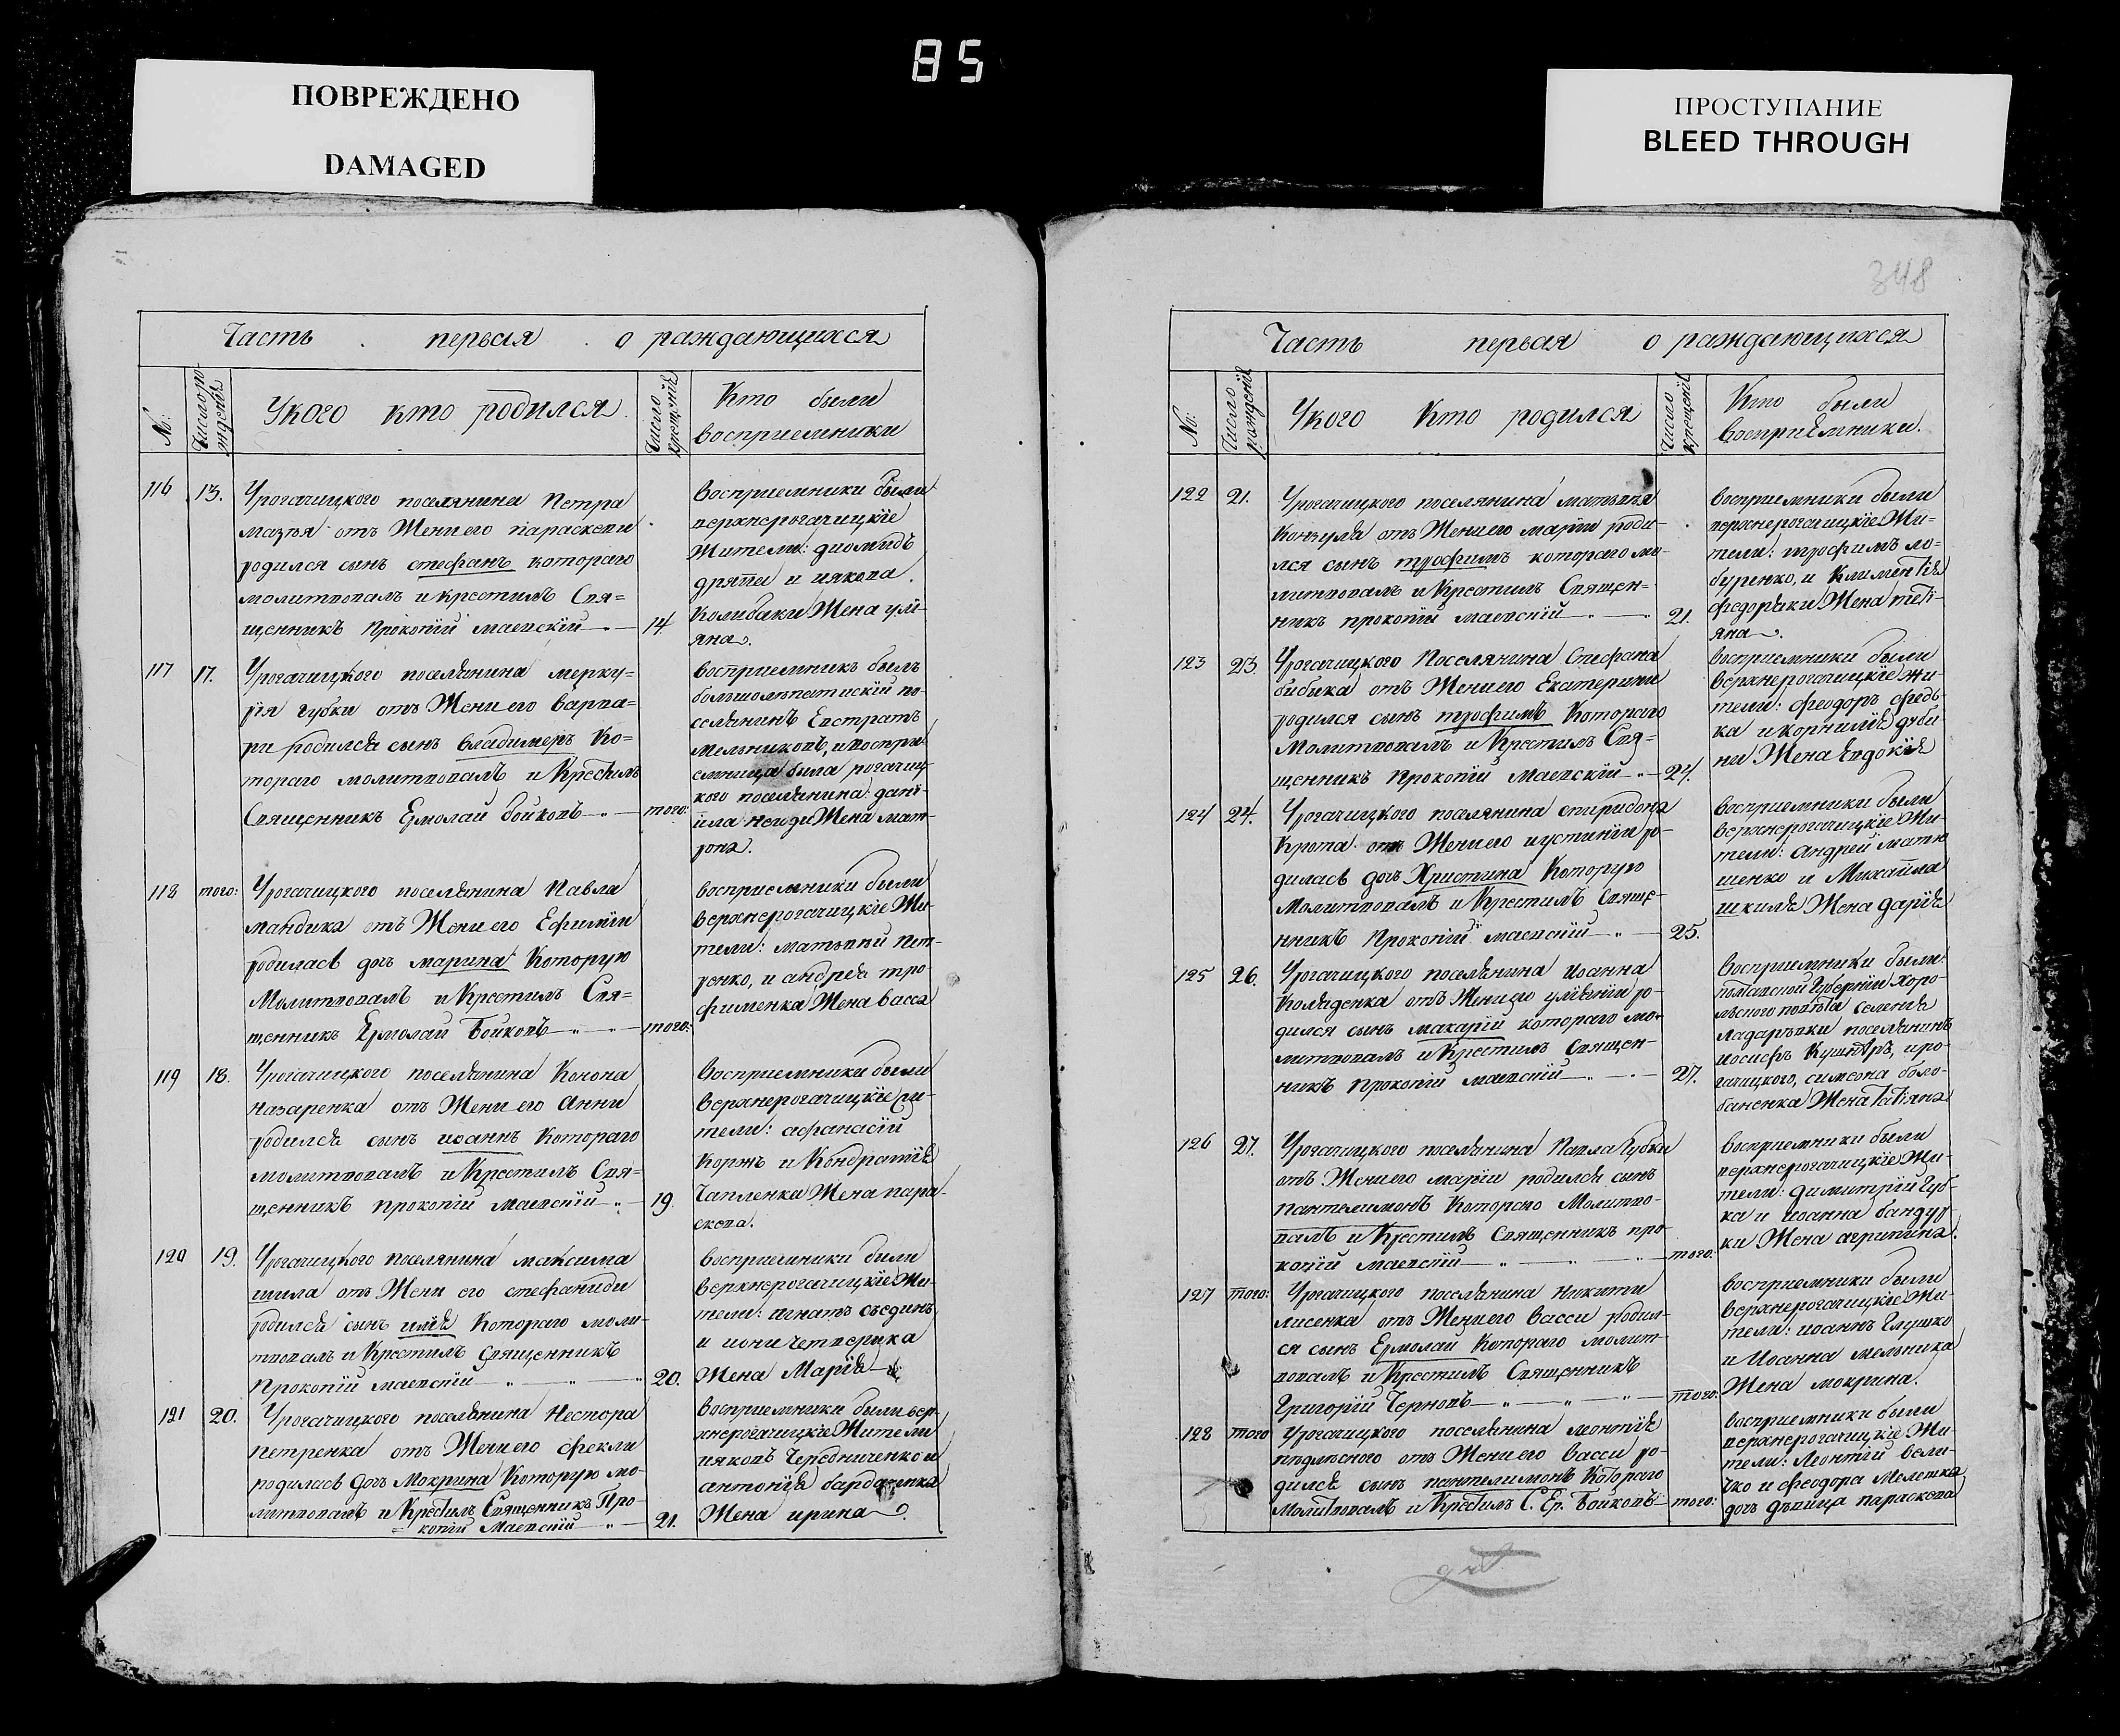 85
ПОВРЕЖДЕНО
DAMAGED
ПРОСТУПАНИЕ
BLEED THROUGH
Часть первая о раждающихся
№:
Число рождения
Укого кто родился
Число крещенія
Кто были
восприемники
116 13. Урогачицкого поселянина Петра
мазъя отъ Жени его параскеви
родился сынъ стефанъ котораго
молитвовалъ и крестилъ Свя=
щенникъ Прокопій маевскій 14.
Восприемники были
верхнерогачицкіе
Жители: диомидъ
и иякова
Колибаки Жена улі-
яна.
117 17. Урогачицкого поселянина мерку=
рія губки отъ Жени его варва=
ри родился сынъ владимеръ Ко=
тораго молитвовалъ и Крестилъ
Священникъ Ермолай Бойковъ того:
восприемникъ былъ
по-
селянинъ Евстратъ
Мельниковъ, и воспри-
емница была рогачиц-
кого поселянина: дані-
ила Жена мат-
рона.
118 того: Урогачицкого поселянина Павла
мандика отъ Жени его Ефиміи
родилась дочь марина Которую
Молитвовалъ и Крестилъ Свя=
щенникъ Ермолай Бойковъ того:
восприемники были
верхнерогачицкіе Жи-
тели: матьвій пет-
ренко, и андрея тро-
фименка Жена васса
119 18. Урогачицкого поселянина Конона
назаренка отъ Жени его Анни
родился сынъ иоаннъ Котораго
молитвовалъ и Крестилъ Свя=
щенникъ прокопій маевскій 19.
Восприемники были
верхнерогачицкіе жи-
тели: афанасій
Коржъ и Кондратія
Чапленка Жена пара-
скева.
120 19. Урогачицкого поселянина максима
шила отъ Жени его стефаниди
родился сынъ илія Котораго моли-
твовалъ и Крестилъ Священникъ
Прокопій маевскій 20.
восприемники били
верхнерогачицкіе Жи-
тели: игнатъ съединъ
и иони четверика
Жена Марія
121 20. Урогачицкого поселянина Нестора
петренка отъ Жени его феклы
родилась дочь Мокрина Которую мо-
литвовалъ и Крестилъ Священникъ Про-
копій Маевскій 21.
восприемники были вер-
хнерогачицкіе Жители
ияковъ Чередниченко и
антонія бардаченка
Жена ирина
348
Часть первая о раждающихся
№:
Число рожденія
Укого Кто родился
Число крещенія
Кто были
Восприемники.
122 21. Урогачицкого поселянина матьвѣя
Конзула отъ Жени его маріи роди-
лся сынъ трофимъ котораго мо-
литвовалъ и Крестилъ Священ=
никъ прокопій маевскій 21.
восприемники были
верхнерогачицкіе Жи=
тели: трофимъ ло-
буренко, и Климентія
федоряки Жена тати-
яна.
123 23. Урогачицкого Поселянина Стефана
бибика отъ Жени его Екатерини
родился сынъ трофимъ Котораго
Молитвовалъ и Крестилъ Свя=
щенникъ Прокопій Маевскій 24.
восприемники были
верхнерогачицкіе жи-
тели: феодоръ федь-
ка и корнилія дуби
ни Жена Евдокія
124 24. Урогачицкого поселянина спиридона
Крота отъ Жени его иустиніи ро-
дилась дочь Христина Которую
Молитвовалъ и Крестилъ Свяще-
нникъ Прокопій маевскій 25.
восприемники были
верхнерогачицкіе Жи-
тели: андрей матю
шенко и Михаила
шкиля Жена дарія
125 26. Урогачицкого поселянина иоанна
Коляденка отъ Жени его уліяніи ро-
дился сынъ макарій котораго мо-
литвовалъ и Крестилъ Священ-
никъ Прокопій маевскій 27.
Восприемники были:
полтавской Губерніи Хоро-
льского повѣта селенія
поселянинъ
иосифъ Кушниръ, иро-
гачицкого, симеона боло-
баненка Жена татіяна
126 27. Урогачицкого поселянина Павла Губки
отъ Жени его маріи родился сынъ
пантелимонъ Котораго Молитво-
валъ и Крестилъ Священникъ про
копій маевскій того:
восприемники были
верхнерогачицкіе Жи-
тели: димитрій Губ-
ка и иоанна бандур-
ки Жена агрипина.
127 того: Урогачицкого поселянина никити
лисенка отъ Жени его васси родил-
ся сынъ Ермолай Котораго молит-
вовалъ и Крестилъ Священникъ
Григорій Черновъ того:
восприемники были
верхнерогачицкіе Жи-
тели: иоаннъ Глушко
и Иоанна мельника
Жена мокрина.
128 того Урогачицкого поселянина леонтія
отъ Жени его васси ро-
дился сынъ пантелимонъ Котораго
Молитвовалъ и Крестилъ С. Ер. Бойковъ того:
восприемники были
верхнерогачицкіе Жи
тели: Леонтій вели-
чко и феодора Мелешка
дочь дѣвица параскева